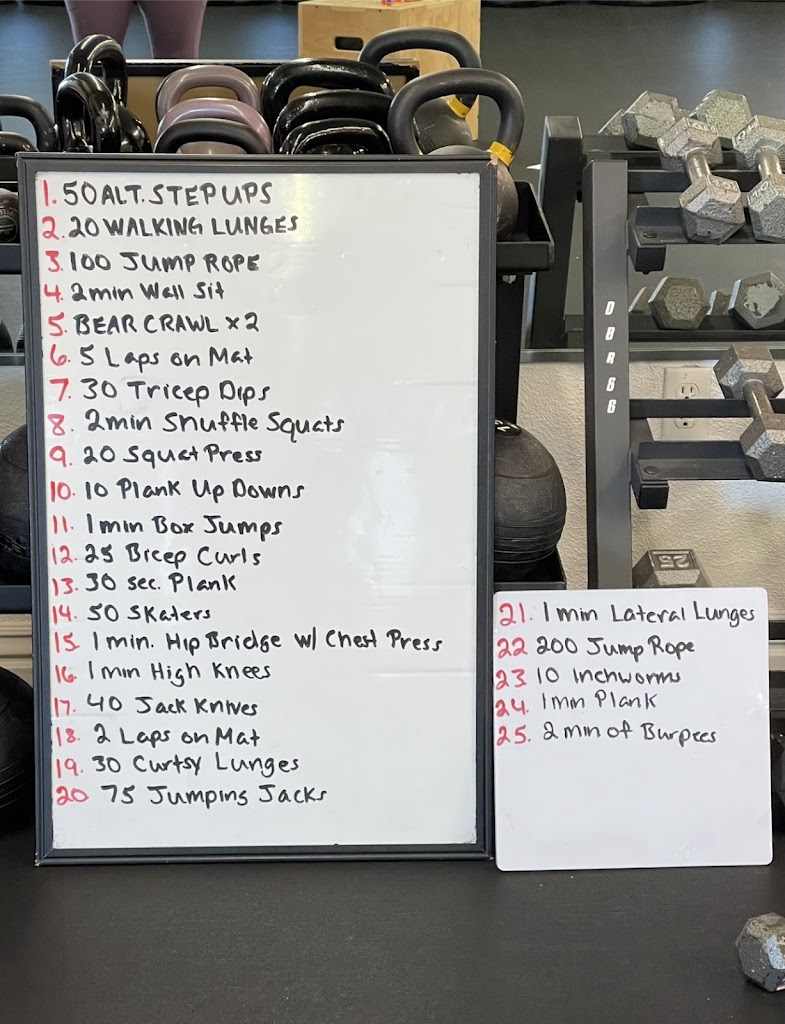 1. 50 ALT. STEP UPS
2. 20 WALKING LUNGES
3. 100 JUMP ROPE
4. 2min Wall Sit
5. BEAR CRAWL x 2
6. 5 Laps on Mat
7. 30 Tricep Dips
8. 2min Shuffle Squats
9. 20 Squat Press
10. 10 Plank Up Downs
11. 1min Box Jumps
12. 25 Bicep Curls
13. 30 sec. Plank
14. 50 Skaters
15. 1 min. Hip Bridge w/ Chest Press
16. 1min High Knees
17. 40 Jack Knives
18. 2 Laps on Mat
19. 30 Curtsy Lunges
20 75 Jumping Jacks
21. 1 min Lateral Lunges
22 200 Jump Rope
23. 10 Inchworms
24. 1min Plank
25. 2 min of Burpees
DBR86
25